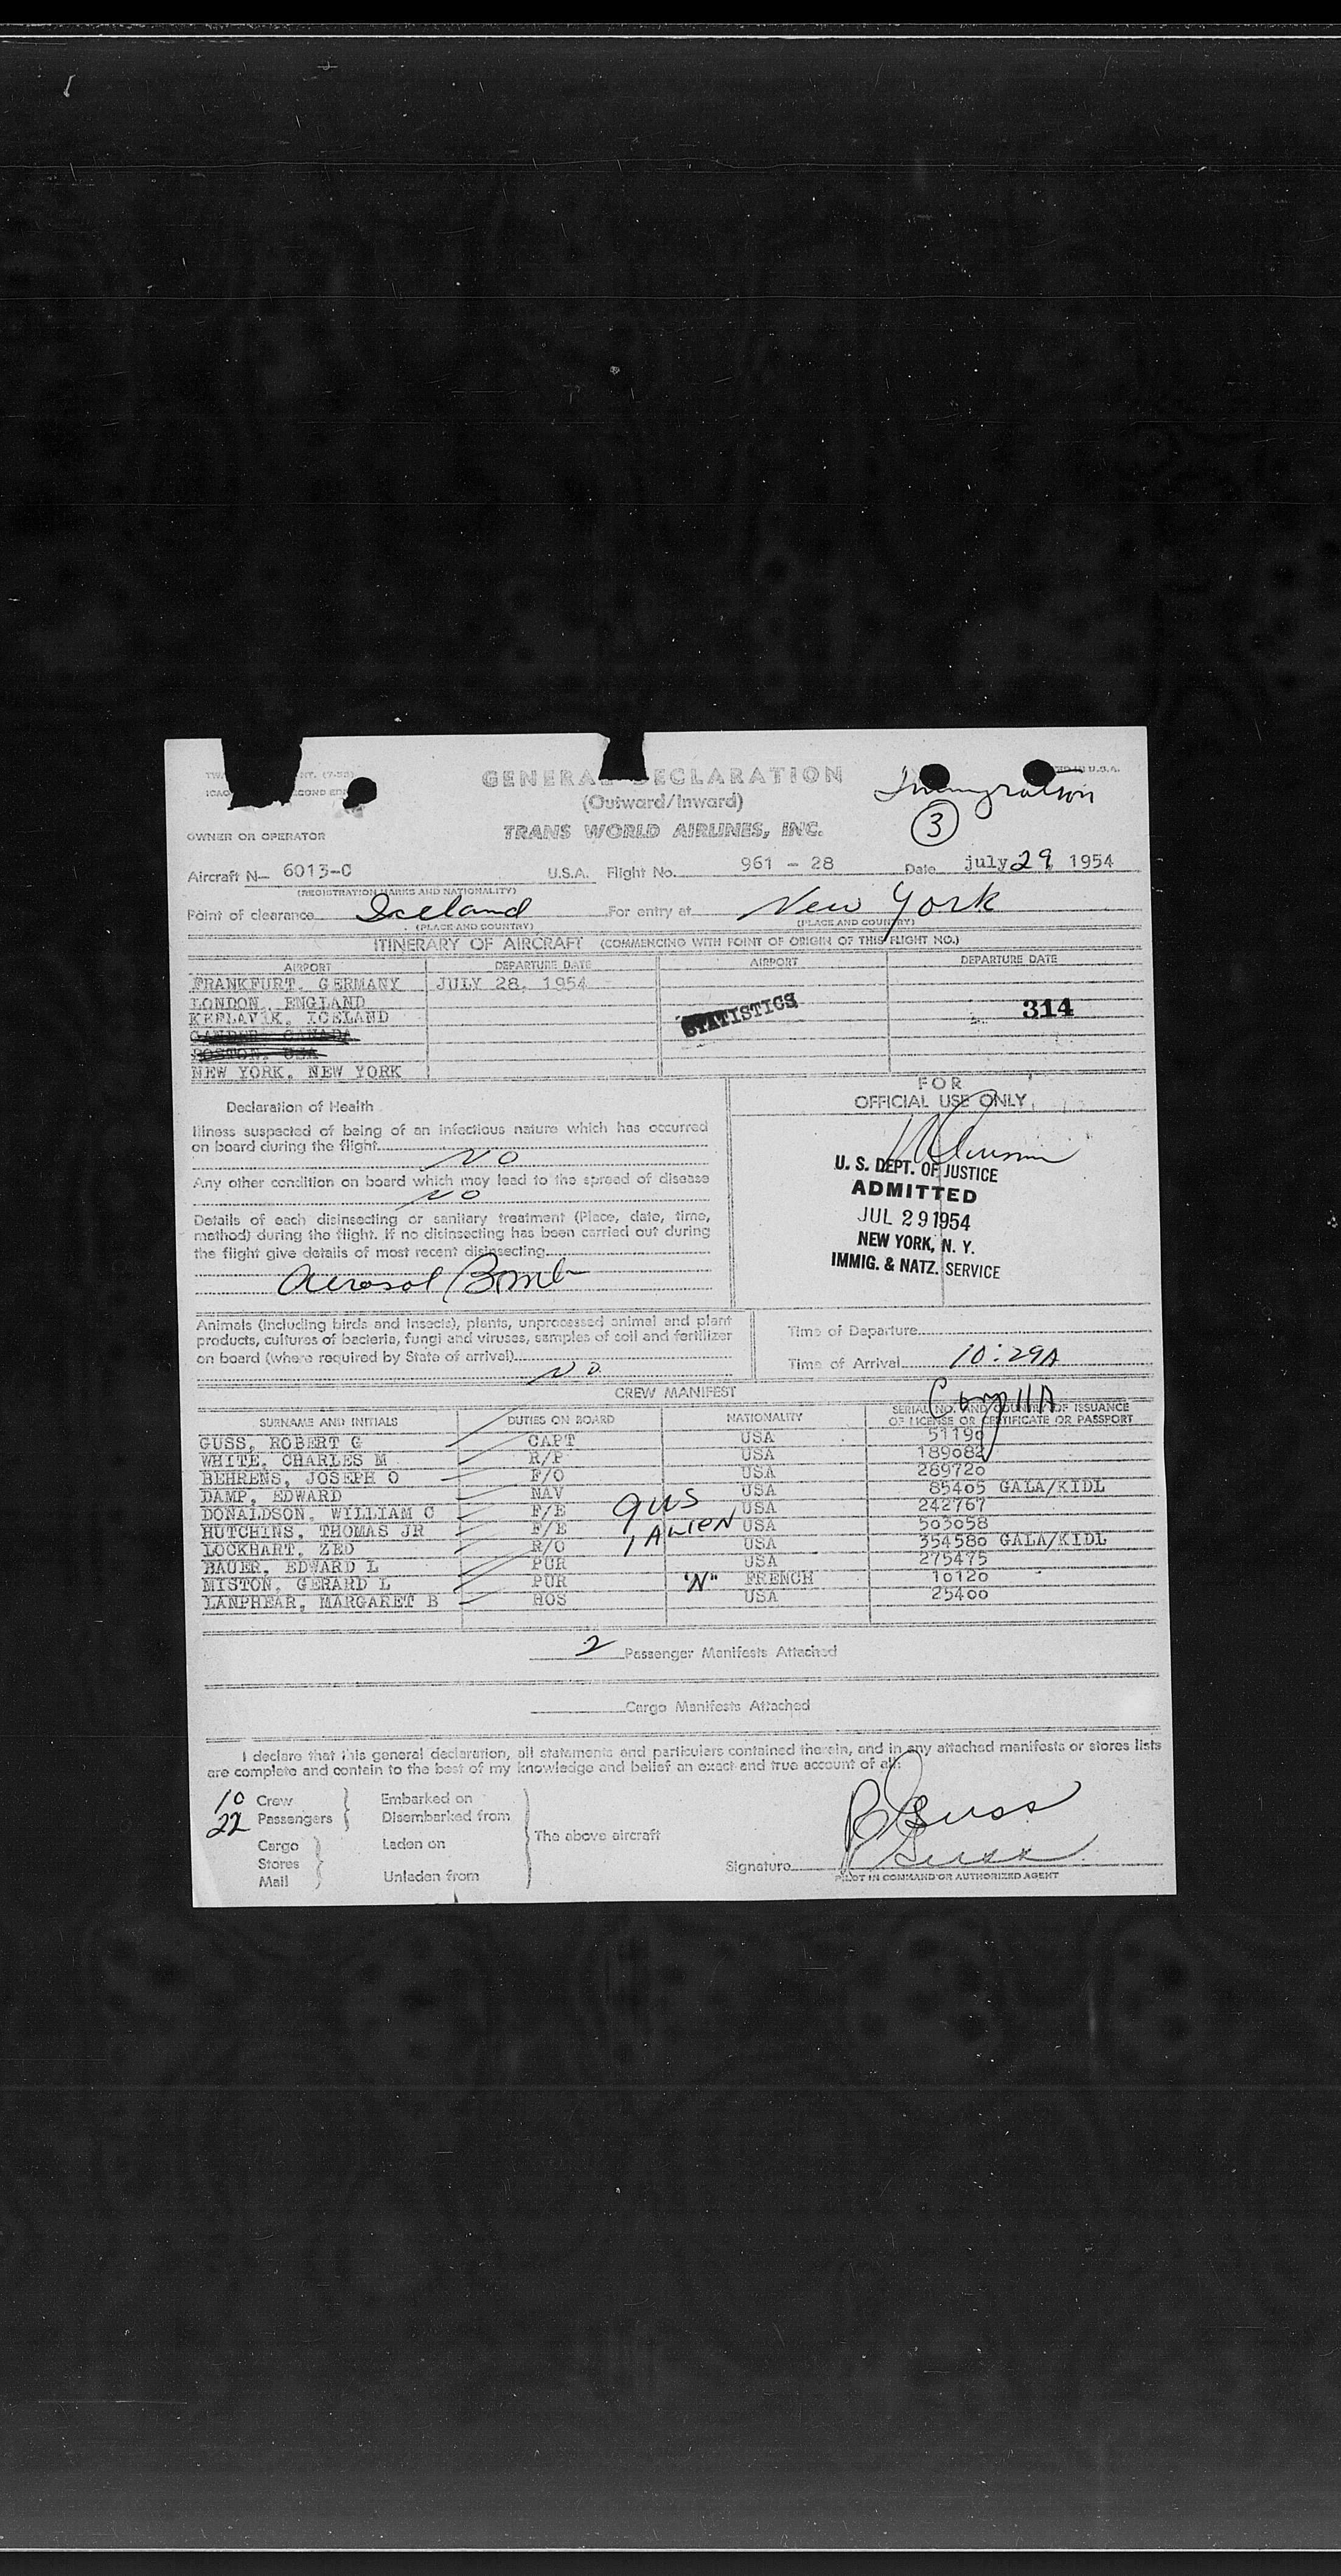 GENERAL DECLARATION
(Outward/Inward)
TRANS WORLD AIRLINES, INC.
Immigration
3
OWNER OR OPERATOR
Aircraft N— 6013-C U.S.A. Flight No. 961 - 28 Date july 29 1954
(REGISTRATION MARKS AND NATIONALITY)
Point of clearance Iceland For entry at New York
(PLACE AND COUNTRY) (PLACE AND COUNTRY)
ITINERARY OF AIRCRAFT (COMMENCING WITH POINT OF ORIGIN OF THIS FLIGHT NO.)
AIRPORT DEPARTURE DATE AIRPORT DEPARTURE DATE
FRANKFURT, GERMANY JULY 28, 1954
LONDON, ENGLAND
KEFLAVIK, ICELAND
STATISTICS
314
GANDER, CANADA
BOSTON, USA
NEW YORK, NEW YORK
FOR
OFFICIAL USE ONLY
Declaration of Health
Illness suspected of being of an infectious nature which has occurred
on board during the flight
NO
Any other condition on board which may lead to the spread of disease
NO
Details of each disinsecting or sanitary treatment (Place, date, time,
method) during the flight. If no disinsecting has been carried out during
the flight give details of most recent disinsecting
Aerosol Bomb
U. S. DEPT. OF JUSTICE
ADMITTED
JUL 29 1954
NEW YORK, N. Y.
IMMIG. & NATZ. SERVICE
Animals (including birds and insects), plants, unprocessed animal and plant
products, cultures of bacteria, fungi and viruses, samples of soil and fertilizer
on board (where required by State of arrival)
NO
Time of Departure
Time of Arrival 10:29A
CREW MANIFEST
Comp 11A
SURNAME AND INITIALS DUTIES ON BOARD NATIONALITY SERIAL NO. AND COUNTRY OF ISSUANCE
OF LICENSE OR CERTIFICATE OR PASSPORT
GUSS, ROBERT G CAPT USA 51190
WHITE, CHARLES M R/P USA 189082
BEHRENS, JOSEPH O F/O USA 289720
DAMP, EDWARD NAV USA 85405 GALA/KIDL
DONALDSON, WILLIAM C F/E USA 242767
HUTCHINS, THOMAS JR F/E USA 503058
LOCKHART, ZED R/O USA 354580 GALA/KIDL
BAUER, EDWARD L PUR USA 275475
MISTON, GERARD L PUR "N" FRENCH 10120
LANPHEAR, MARGARET B HOS USA 25400
9 US
1 ALIEN
2 Passenger Manifests Attached
Cargo Manifests Attached
I declare that this general declaration, all statements and particulars contained therein, and in any attached manifests or stores lists
are complete and contain to the best of my knowledge and belief an exact and true account of all:
10 Crew Embarked on
22 Passengers Disembarked from
The above aircraft
Cargo Laden on
Stores
Mail Unladen from
R Guss
Signature Guss
PILOT IN COMMAND OR AUTHORIZED AGENT